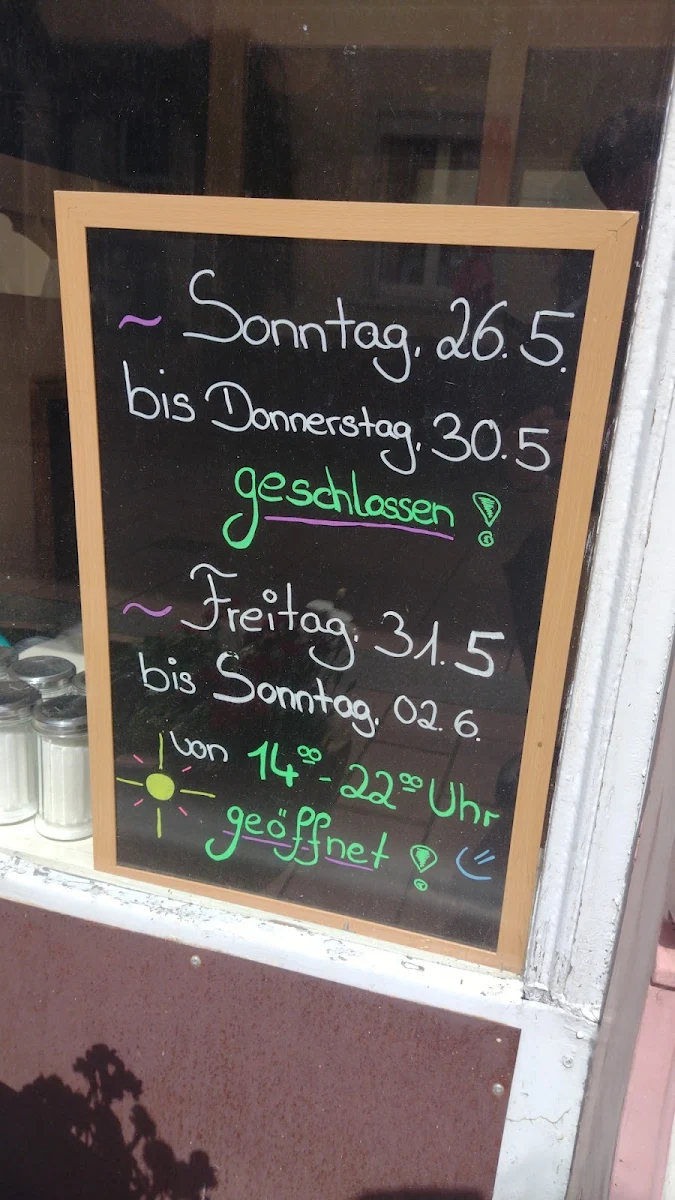 ~ Sonntag, 26.5.
bis Donnerstag, 30.5
geschlossen!
~ Freitag, 31.5
bis Sonntag, 02.6.
von 14⁰⁰-22⁰⁰ Uhr
geöffnet!